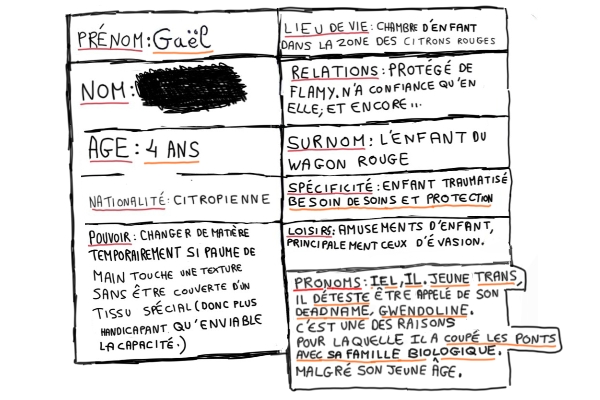 PRÉNOM: Gaël
NOM:
AGE: 4 ANS
NATIONALITÉ: CITROPIENNE
POUVOIR: CHANGER DE MATÈRE
TEMPORAIREMENT SI PAUME DE
MAIN TOUCHE UNE TEXTURE
SANS ÊTRE COUVERTE D'UN
TISSU SPÉCIAL (DONC PLUS
HANDICAPANT QU'ENVIABLE
LA CAPACITÉ.)
LIEU DE VIE: CHAMBRE D'ENFANT
DANS LA ZONE DES CITRONS ROUGES
RELATIONS: PROTÉGÉ DE
FLAMY. N'A CONFIANCE QU'EN
ELLE, ET ENCORE...
SURNOM: L'ENFANT DU
WAGON ROUGE
SPÉCIFICITÉ: ENFANT TRAUMATISÉ
BESOIN DE SOINS ET PROTECTION
LOISIRS: AMUSEMENTS D'ENFANT,
PRINCIPALEMENT CEUX D'ÉVASION.
PRONOMS: IEL, IL. JEUNE TRANS,
IL DÉTESTE ÊTRE APPELÉ DE SON
DEADNAME, GWENDOLINE.
C'EST UNE DES RAISONS
POUR LAQUELLE IL A COUPÉ LES PONTS
AVEC SA FAMILLE BIOLOGIQUE.
MALGRÉ SON JEUNE ÂGE.